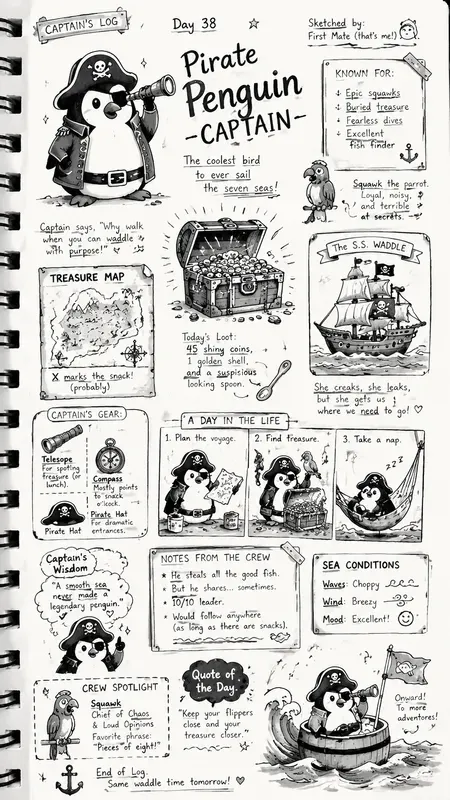 CAPTAIN'S LOG
Day 38
Sketched by:
First Mate (that's me!)
Pirate
Penguin
-CAPTAIN-
The coolest bird
to ever sail
the seven seas!
KNOWN FOR:
Epic squawks
Buried treasure
Fearless dives
Excellent
fish finder
Squawk the parrot.
Loyal, noisy,
and terrible
at secrets.
Captain says, "Why walk
when you can waddle
with purpose!"
TREASURE MAP
X marks the snack!
(probably)
Today's Loot:
45 shiny coins,
1 golden shell,
and a suspicious
looking spoon.
The S.S. WADDLE
She creaks, she leaks,
but she gets us
where we need to go!
CAPTAIN'S GEAR:
Telesope
For spotting
treasure (or
lunch).
Compass
Mostly points
to snack
o'clock.
Pirate Hat
Pirate Hat
For dramatic
entrances.
A DAY IN THE LIFE
1. Plan the voyage.
2. Find treasure.
3. Take a nap.
z z z
Captain's
Wisdom
"A smooth sea
never made a
legendary penguin."
NOTES FROM THE CREW
* He steals all the good fish.
* But he shares... sometimes.
* 10/10 leader.
* Would follow anywhere
(as long as there are snacks).
SEA CONDITIONS
Waves: Choppy
Wind: Breezy
Mood: Excellent!
CREW SPOTLIGHT
Squawk
Chief of Chaos
& Loud Opinions
Favorite phrase:
"Pieces of eight!"
Quote of
the Day.
"Keep your flippers
close and your
treasure closer."
Onward!
To more
adventores!
End of Log.
Same waddle time tomorrow!